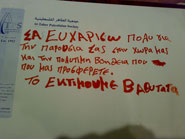 ΣΑ ΕΥΧΑΡΙΣΩ ΠΟΛΥ ΓΙΑ
ΤΗΝ ΠΑΡΟΥΣΙΑ ΣΑΣ ΣΤΟΝ ΧΩΡΑ ΜΑΣ
ΚΑΙ ΤΗΝ ΠΟΛΥΤΙΜΗ ΒΟΗΘΕΙΑ ΠΟΥ
ΠΟΥ ΜΑΣ ΠΡΟΣΦΕΡΕΤΕ.
ΤΟ ΕΚΤΙΜΟΥΜΕ ΒΑΘΥΤΑΤΑ